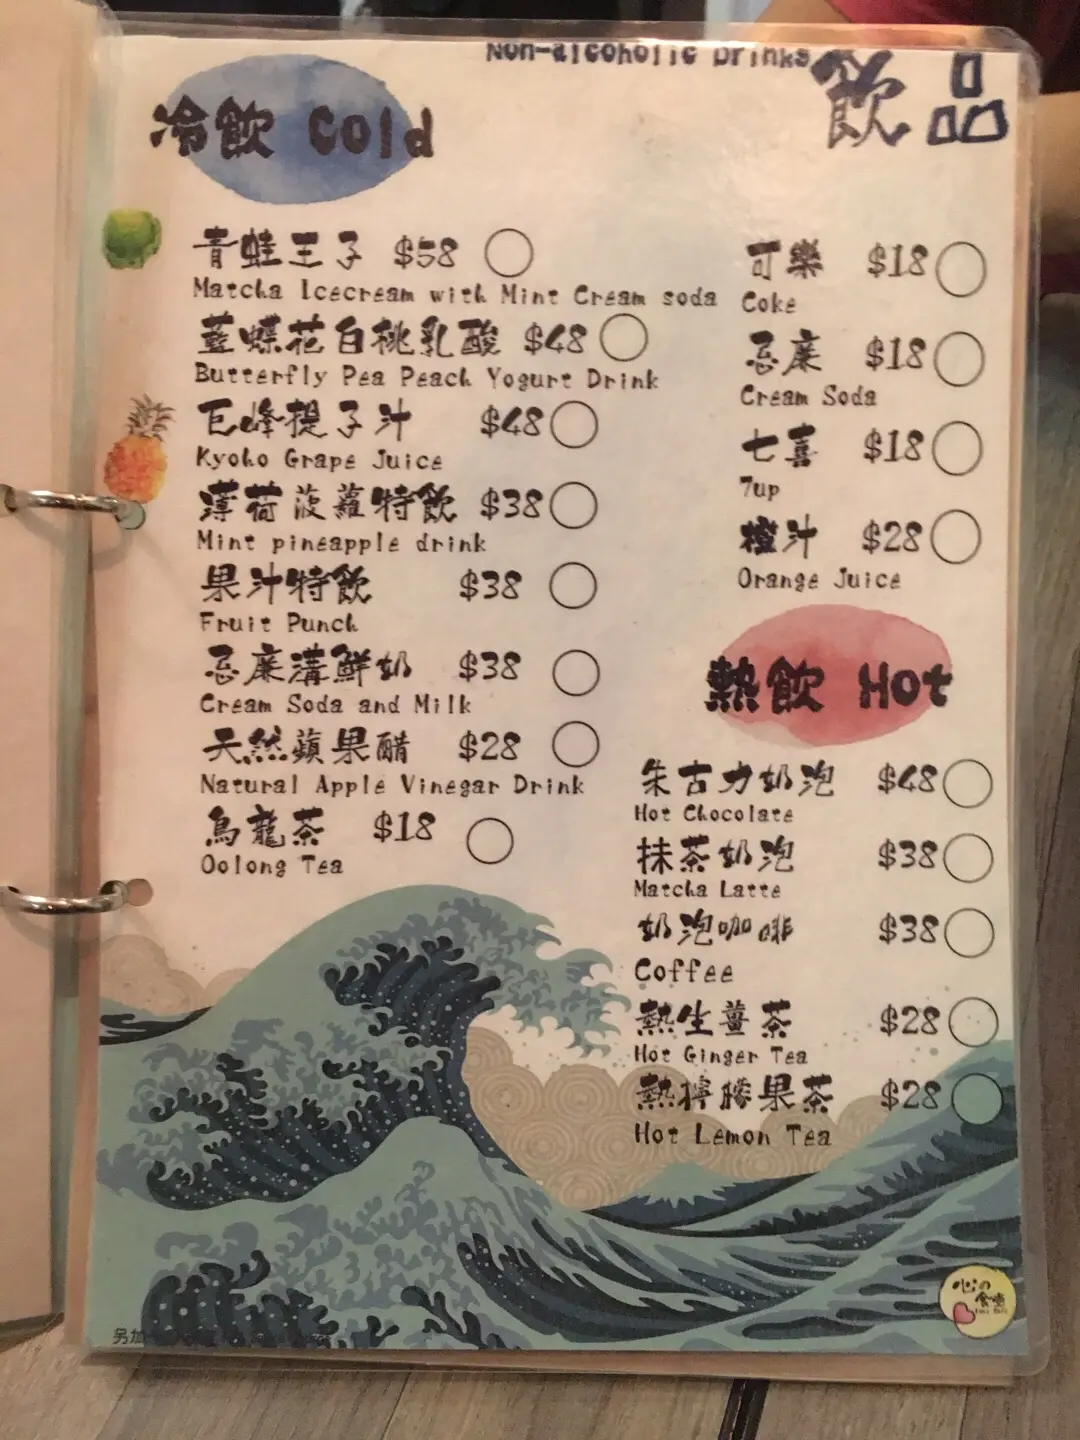 Non-alcoholic Drinks
飲品
冷飲 Cold
青蛙王子 $58
Matcha Icecream with Mint Cream soda
藍蝶花白桃乳酸 $48
Butterfly Pea Peach Yogurt Drink
巨峰提子汁 $48
Kyoho Grape Juice
薄荷菠蘿特飲 $38
Mint pineapple drink
果汁特飲 $38
Fruit Punch
忌廉溝鮮奶 $38
Cream Soda and Milk
天然蘋果醋 $28
Natural Apple Vinegar Drink
烏龍茶 $18
Oolong Tea
可樂 $18
Coke
忌廉 $18
Cream Soda
七喜 $18
7up
橙汁 $28
Orange Juice
熱飲 Hot
朱古力奶泡 $48
Hot Chocolate
抹茶奶泡 $38
Matcha Latte
奶泡咖啡 $38
Coffee
熱生薑茶 $28
Hot Ginger Tea
熱檸檬果茶 $28
Hot Lemon Tea
心の
食堂
另加